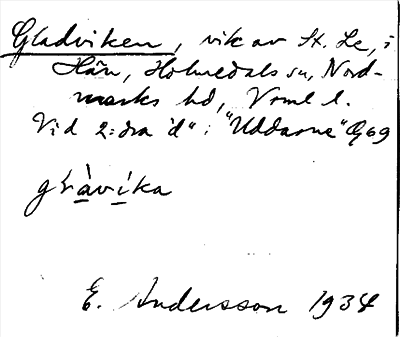 Gladviken, vik av St. Le, i
Hån, Holmedals sn, Nord-
marks hd, Vrml l.
Vid 2:dra "d" i "Uddarne" G69
glàvíka
E. Andersson 1934